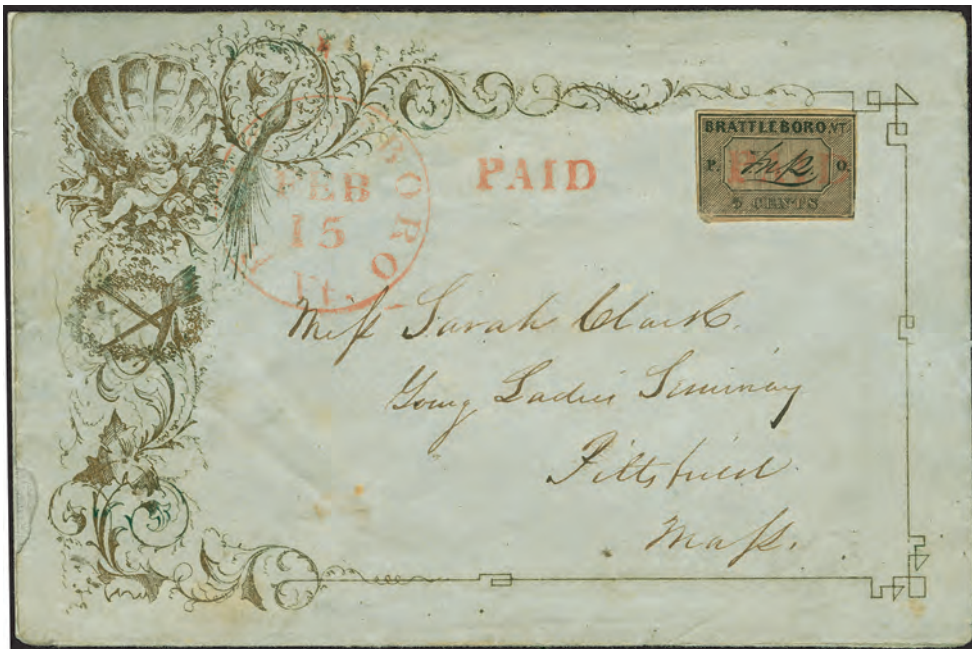 BORO
FEB
15
Vt.
PAID
BRATTLEBORO, VT.
P. O.
5 CENTS
Miss Sarah Clark.
Young Ladies Seminary
Pittsfield
Mass.